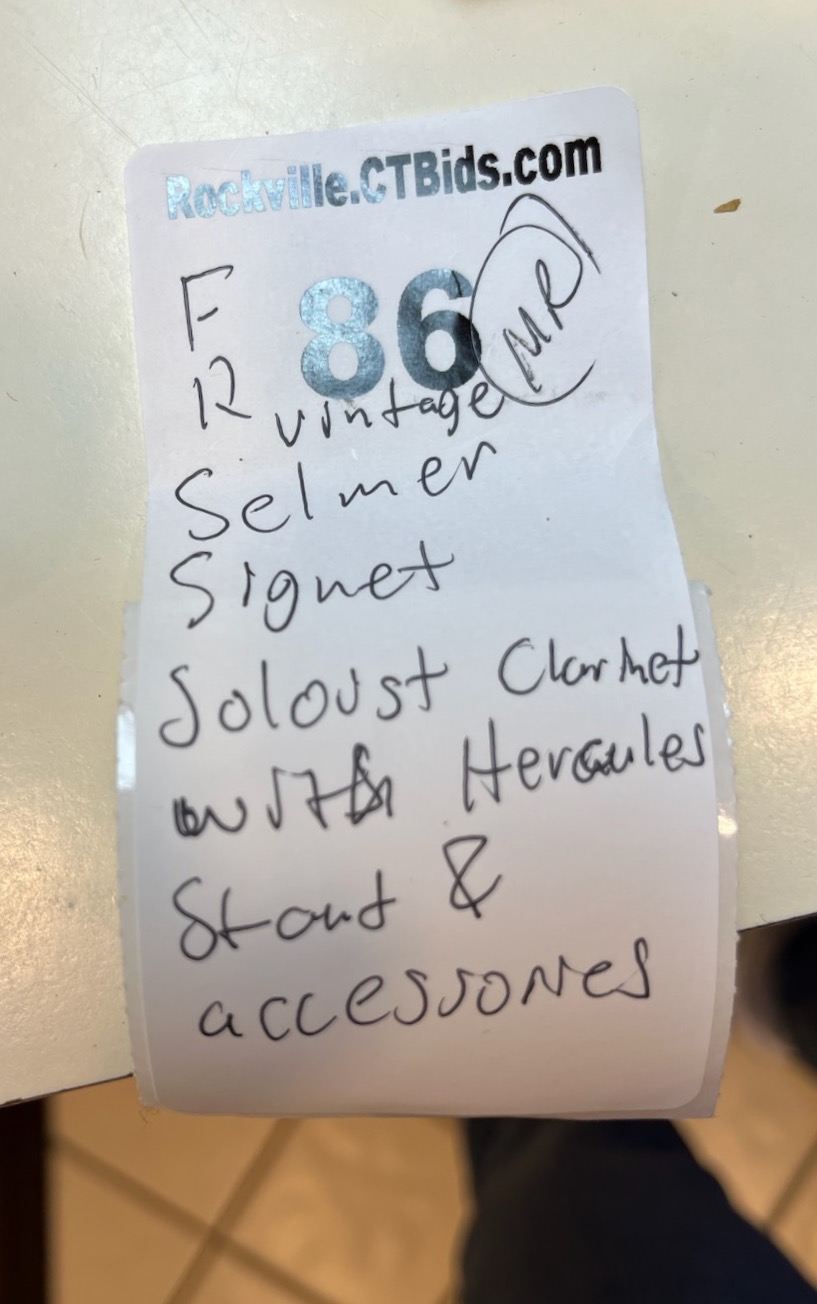 Rockville.CTBids.com
F 86 MR
R vintage
Selmer
Signet
Soloist Clarinet
with Hercules
Stand &
accessories